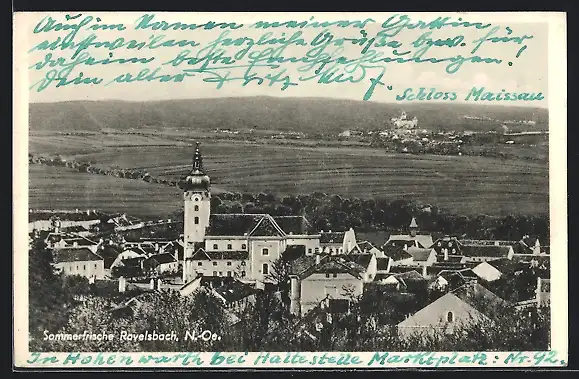 Auch im Namen meiner Gattin
einstweilen herzliche Grüße bzw. für
daheim beste Empfehlungen!
Dein alter Fritz
Schloss Maissau
Sommerfrische Ravelsbach, N.-Oe.
In Hohenwarth bei Haltestelle Marktplatz: Nr. 92.